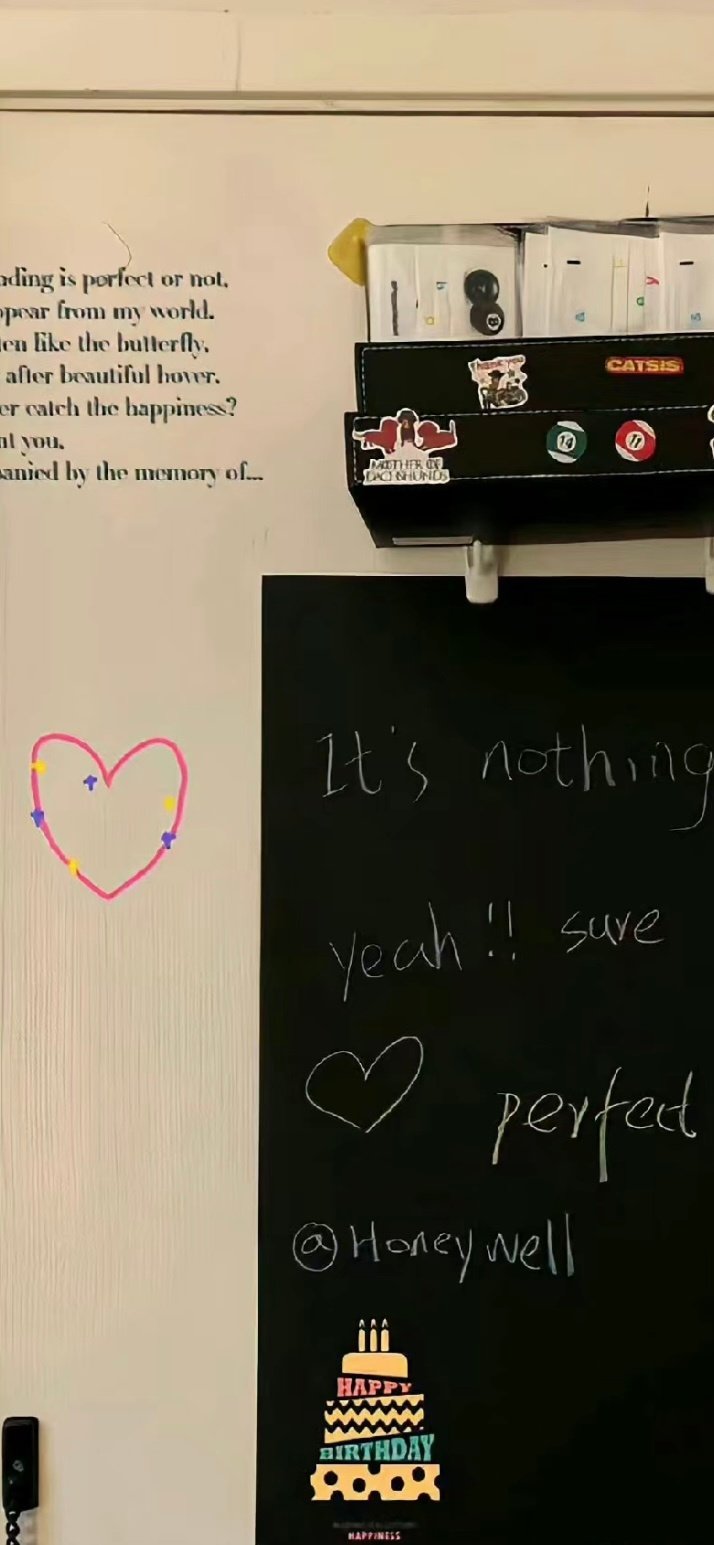 is perfect or not,
from my world.
like the butterfly,
after beautiful hover.
catch the happiness?
you,
by the memory of...
Thank you
CATSIS
MOTHER OF
DACHSHUNDS
14
11
8
It's nothing
yeah!! sure
perfect
@Honeywell
HAPPY
BIRTHDAY
HAPPINESS